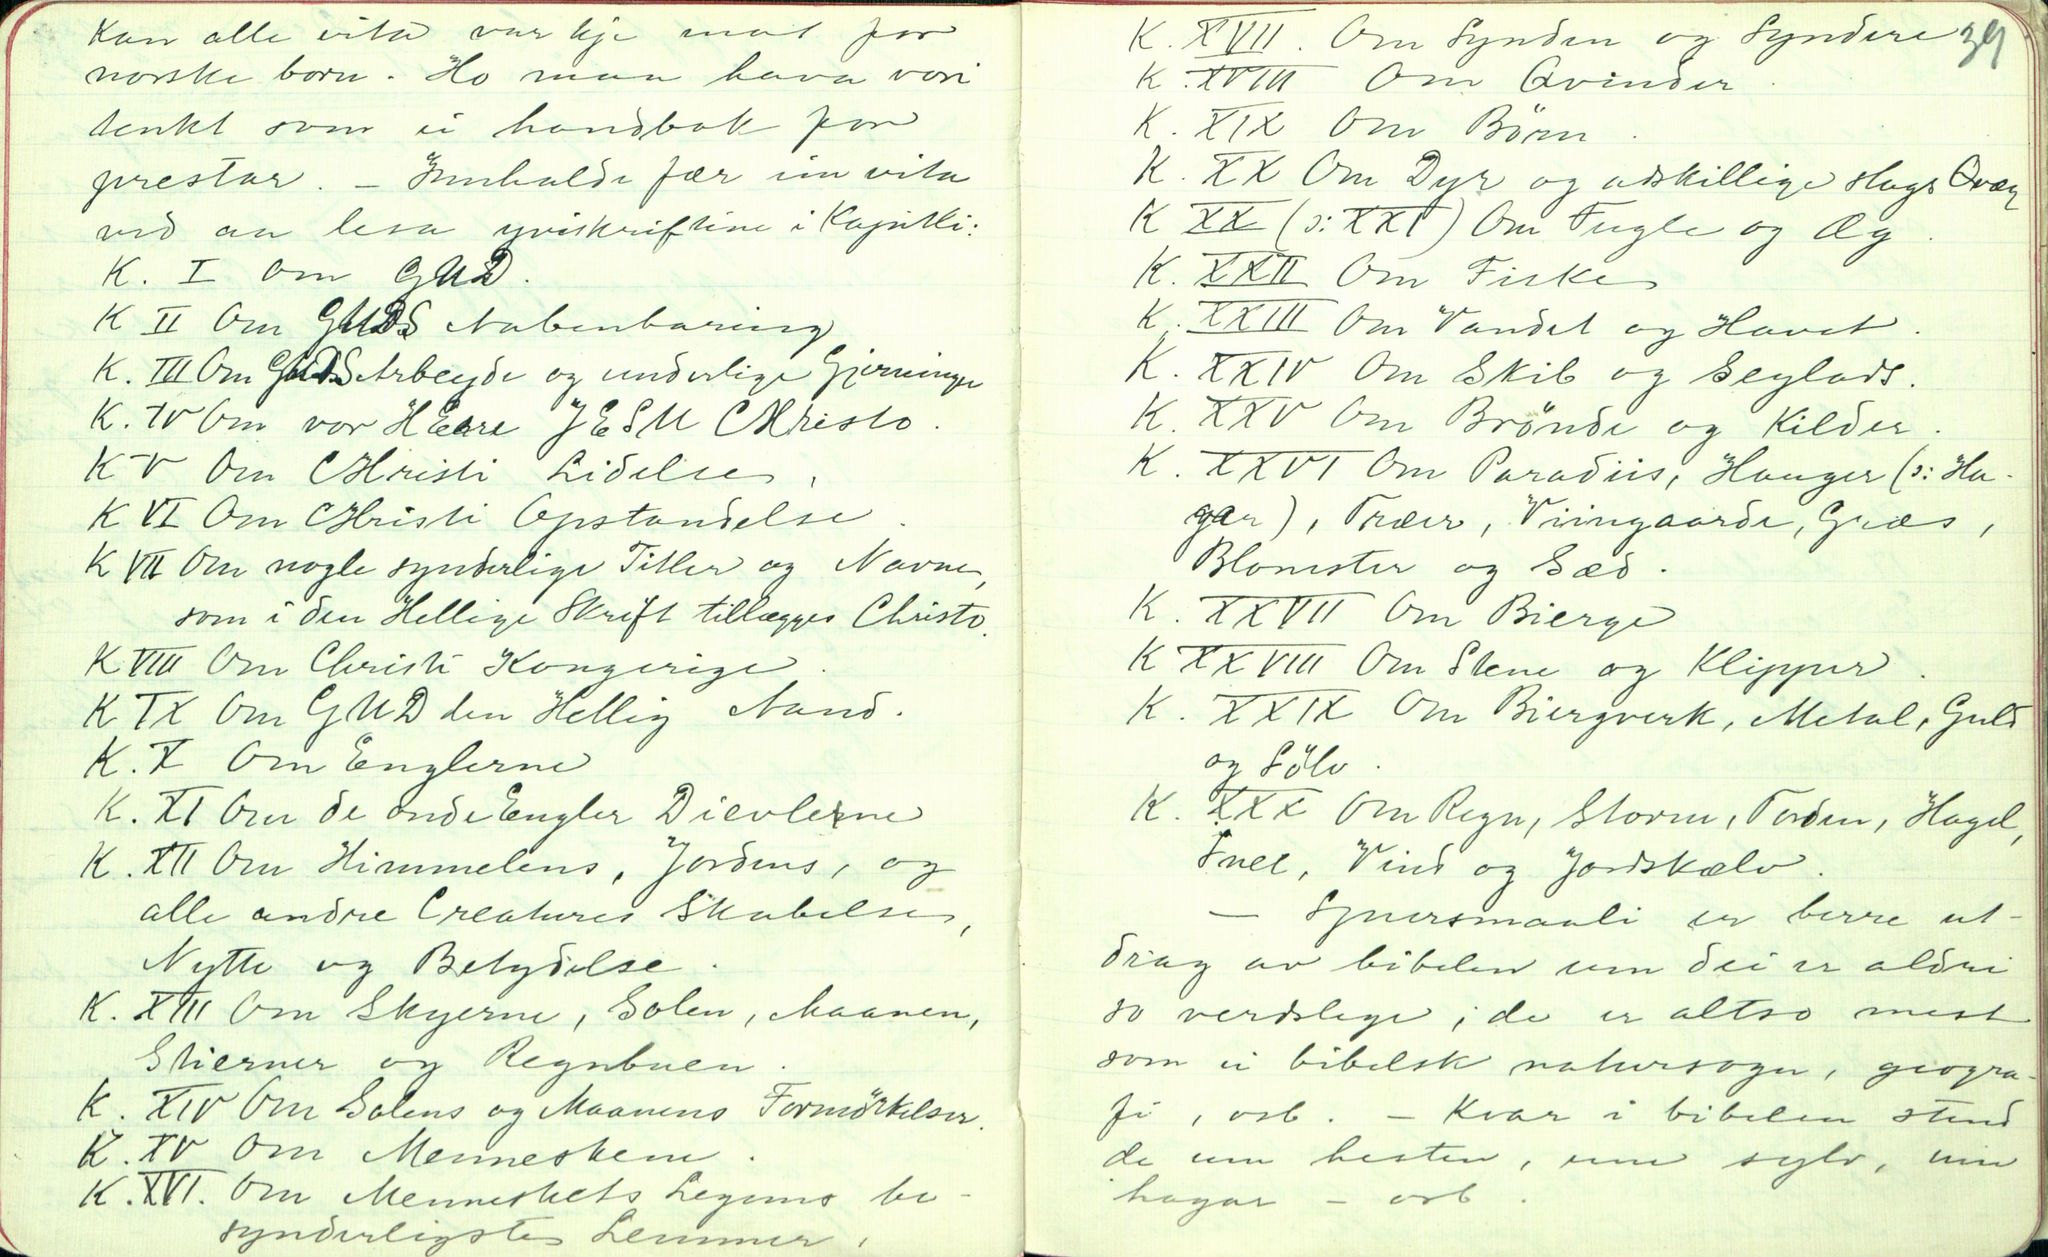 kan alle vita var kje mat for
norske born. Ho maa hava vori
tenkt som ei handbok for
prestar. – Innhalde fær ein vita
ved aa lesa yviskriftine i Kapitli:
K. I Om GUD.
K II Om GUDS Aabenbaring
K. III Om GUDS Arbeyde og underlige Gjerninger
K. IV Om vor HErre JESU CHristo.
K V Om CHristi Lidelse,
K VI Om CHristi Opstandelse.
K VII Om nogle synderlige Titler og Navne,
som i den Hellige Skrift tillægges Christo.
K VIII Om Christi Kongerige.
K IX Om GUD den Hellig Aand.
K. X Om Englerne
K. XI Om de onde Engler Dievlerne
K. XII Om Himmelens, Jordens, og
alle andre Creatures Skabelse,
Nytte og Betydelse.
K. XIII Om Skyerne, Solen, Maanen,
Stierner og Regnbuen.
K. XIV Om Solens og Maanens Formörkelser.
K. XV Om Menneskene.
K. XVI. Om Menneskets Legems be-
synderligste Lemmer,
39
K. XVII. Om Synden og Syndere
K. XVIII Om Qvinder.
K. XIX Om Börn.
K. XX Om Dyr og adskillige slags Qvæg
K XX (ɔ: XXI) Om Fugle og Æg.
K. XXII Om Fiske
K. XXIII Om Vandet og Havet.
K. XXIV Om Skib og Seylads.
K. XXV Om Brönde og Kilder.
K. XXVI Om Paradiis, Hauger (ɔ: Ha-
gar), Træer, Viingaarde, Græs,
Blomster og Sæd.
K. XXVII Om Bierge
K XXVIII Om Stene og Klipper.
K. XXIX Om Biergverk, Metal, Guld
og Sölv.
K. XXX Om Regn, Storm, Torden, Hagel,
Snee, Vind og Jordskælv.
– Spursmaali er berre ut-
drag av bibelen um dei er aldri
so verdslege; de er altso mest
som ei bibelsk natursoga, geogra-
fi, osb. – Kvar i bibelen stend
de um hesten, um sylv, um
hagar – osb.